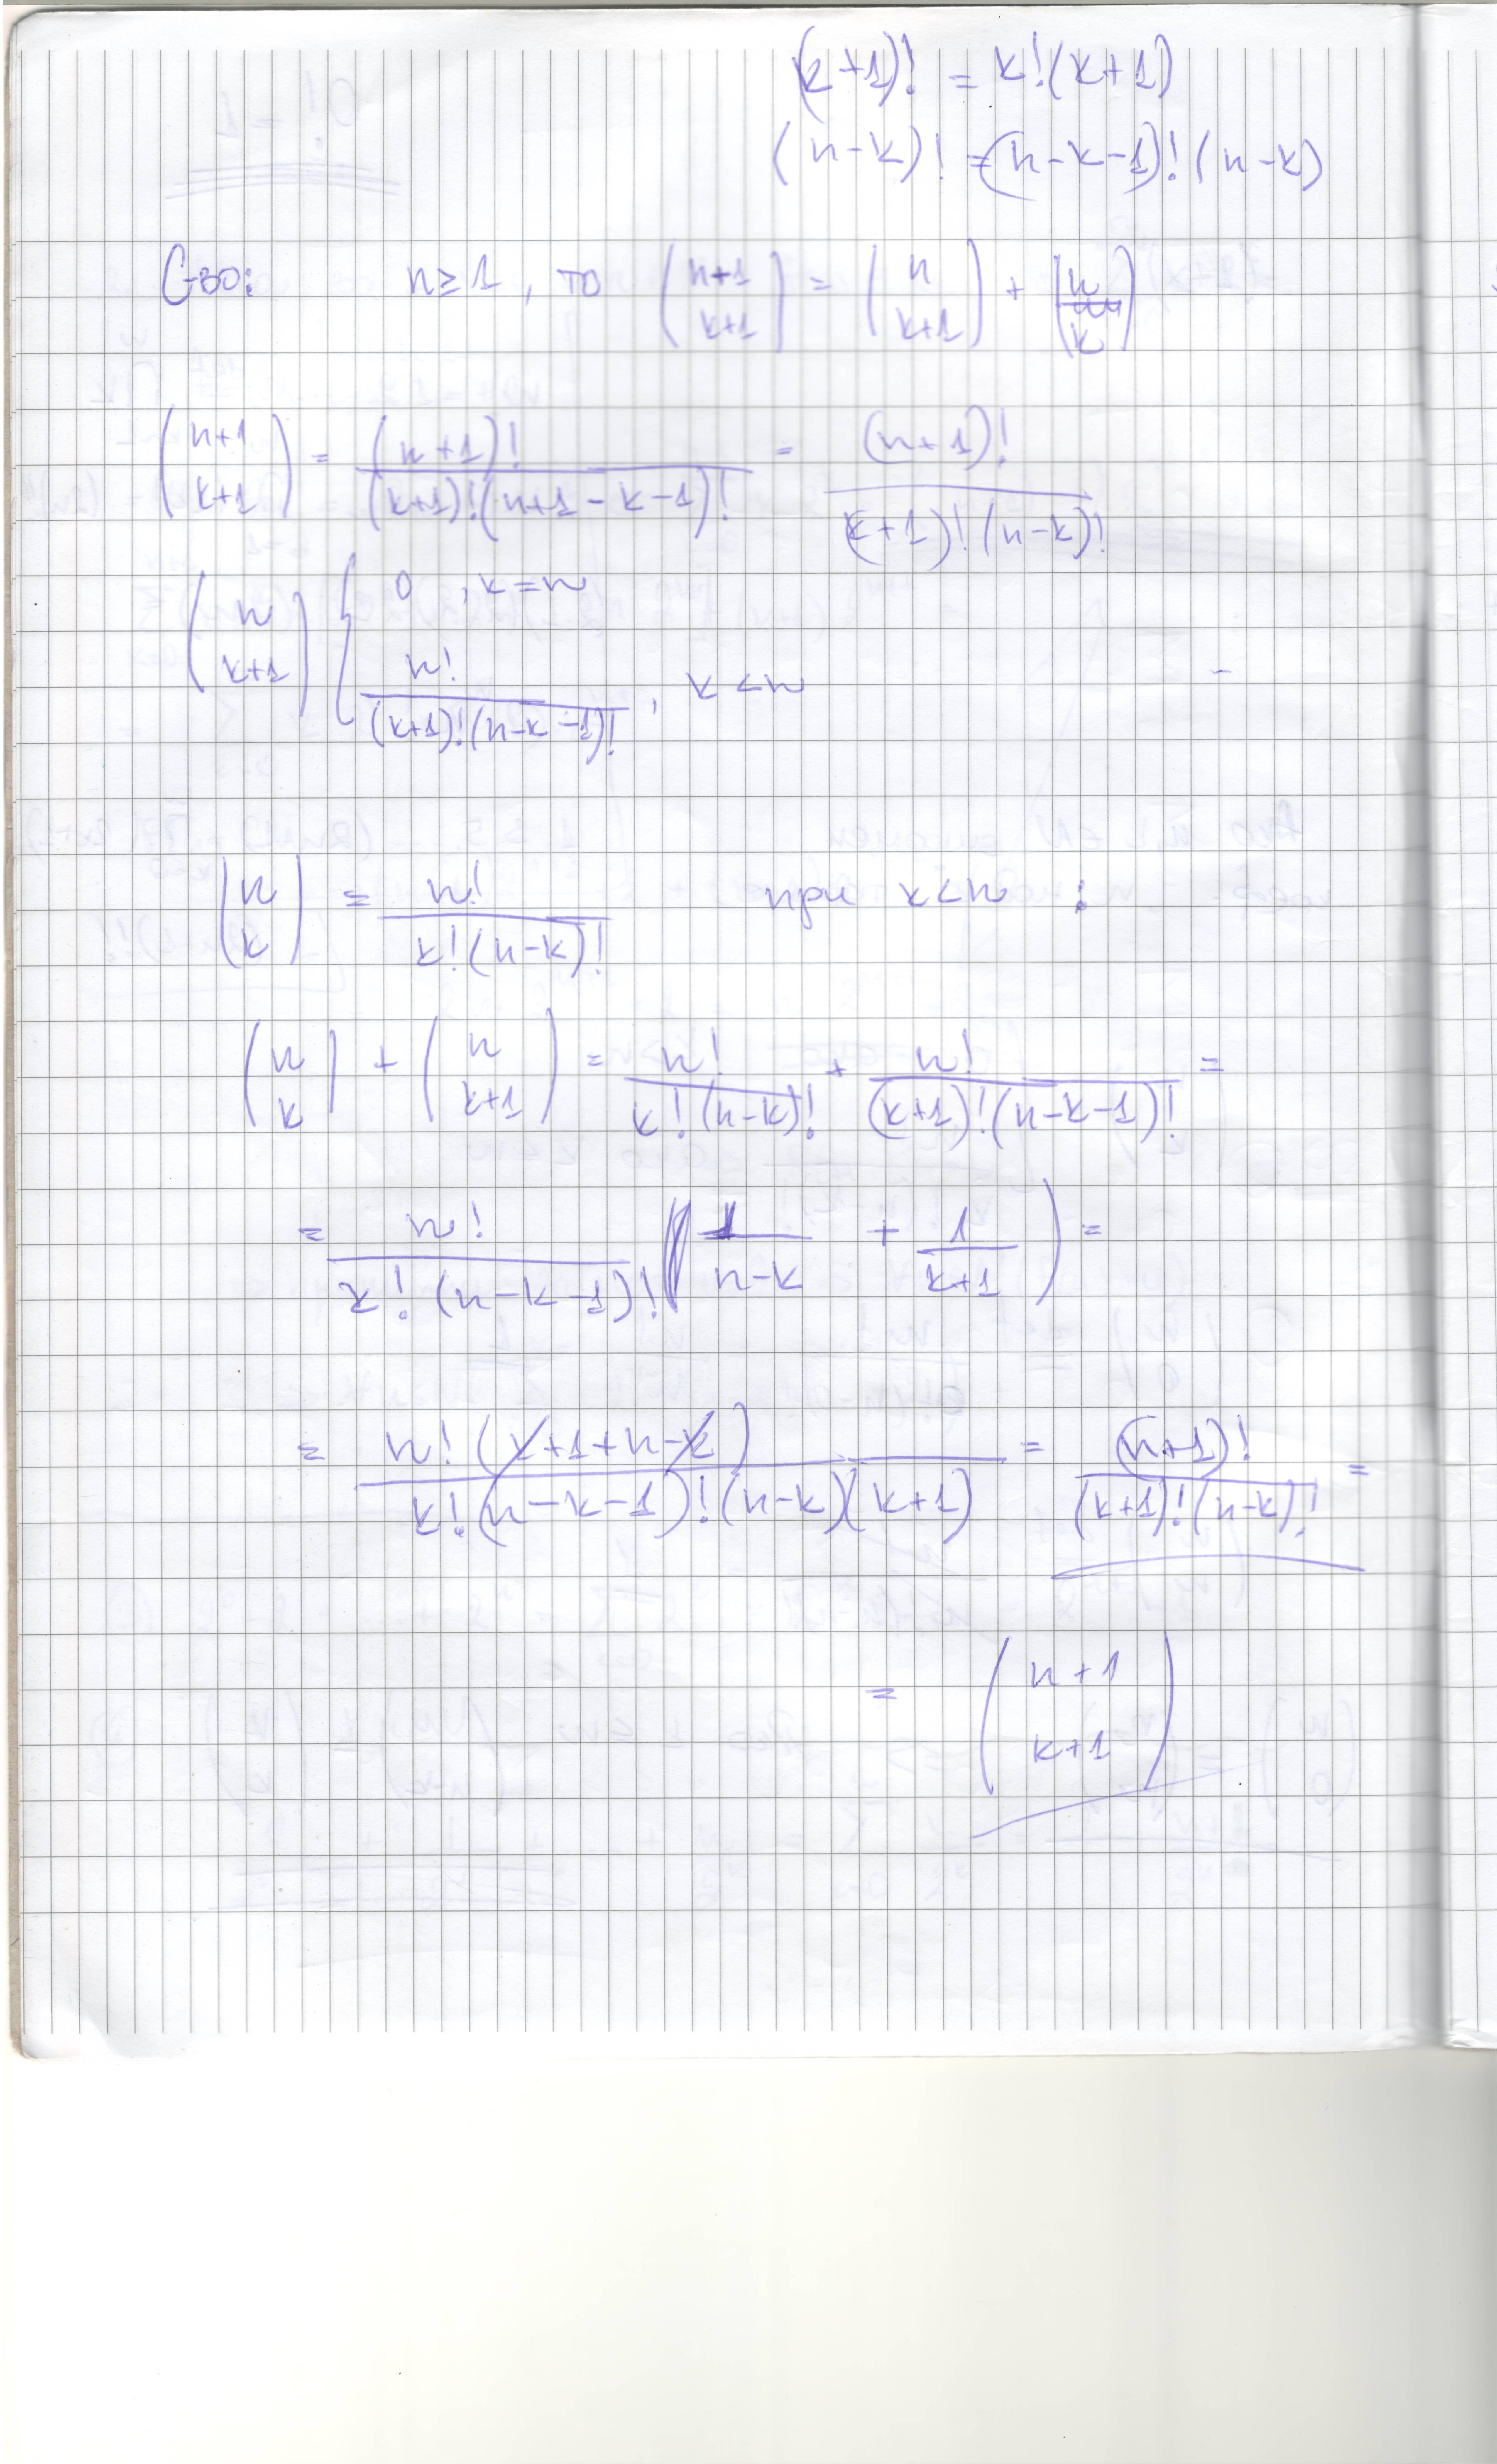 (k+1)! = k!(k+1)
(n-k)! = (n-k-1)! (n-k)
С-во: n ≥ 1, то \binom{n+1}{k+1} = \binom{n}{k+1} + \binom{n}{k}
\binom{n+1}{k+1} = \frac{(n+1)!}{(k+1)!(n+1-k-1)!} = \frac{(n+1)!}{(k+1)!(n-k)!}
\binom{n}{k+1} \begin{cases} 0, k=n \\ \frac{n!}{(k+1)!(n-k-1)!}, k<n \end{cases}
\binom{n}{k} = \frac{n!}{k!(n-k)!} при k<n :
\binom{n}{k} + \binom{n}{k+1} = \frac{n!}{k!(n-k)!} + \frac{n!}{(k+1)!(n-k-1)!} =
= \frac{n!}{k!(n-k-1)!} \left( \frac{1}{n-k} + \frac{1}{k+1} \right) =
= \frac{n!(k+1+n-k)}{k!(n-k-1)!(n-k)(k+1)} = \frac{(n+1)!}{(k+1)!(n-k)!} =
= \binom{n+1}{k+1}